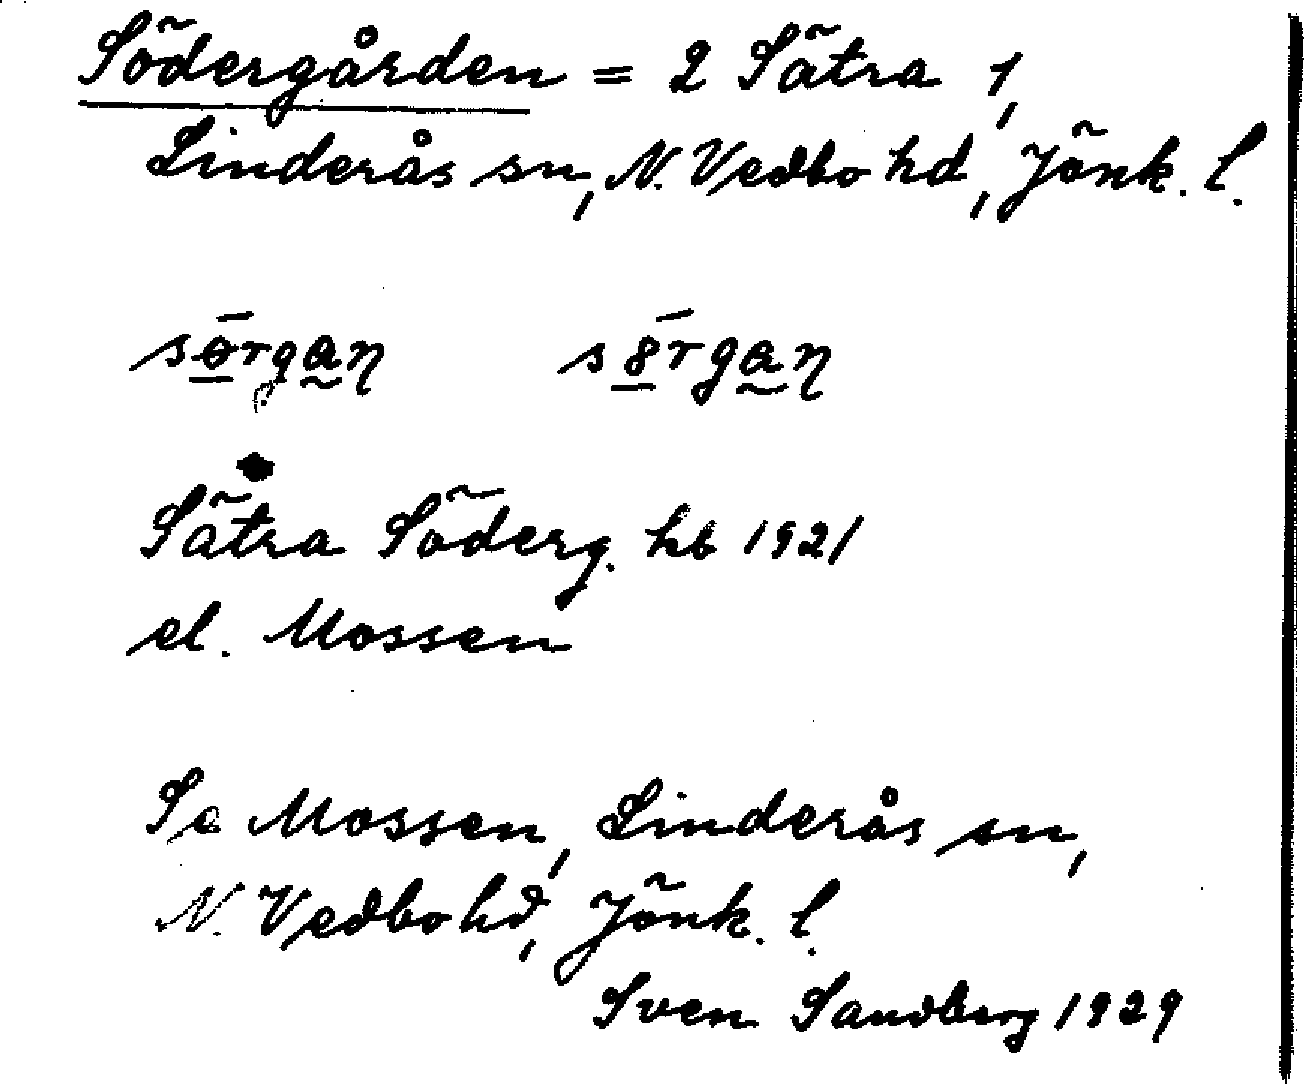 Södergården = 2 Sätra 1,
Linderås sn, N. Vedbo hd, Jönk. l.
Sätra Söderg. hb 1921
el. Mossen
Se Mossen, Linderås sn,
N. Vedbo hd, Jönk. l.
Sven Sandberg 1929